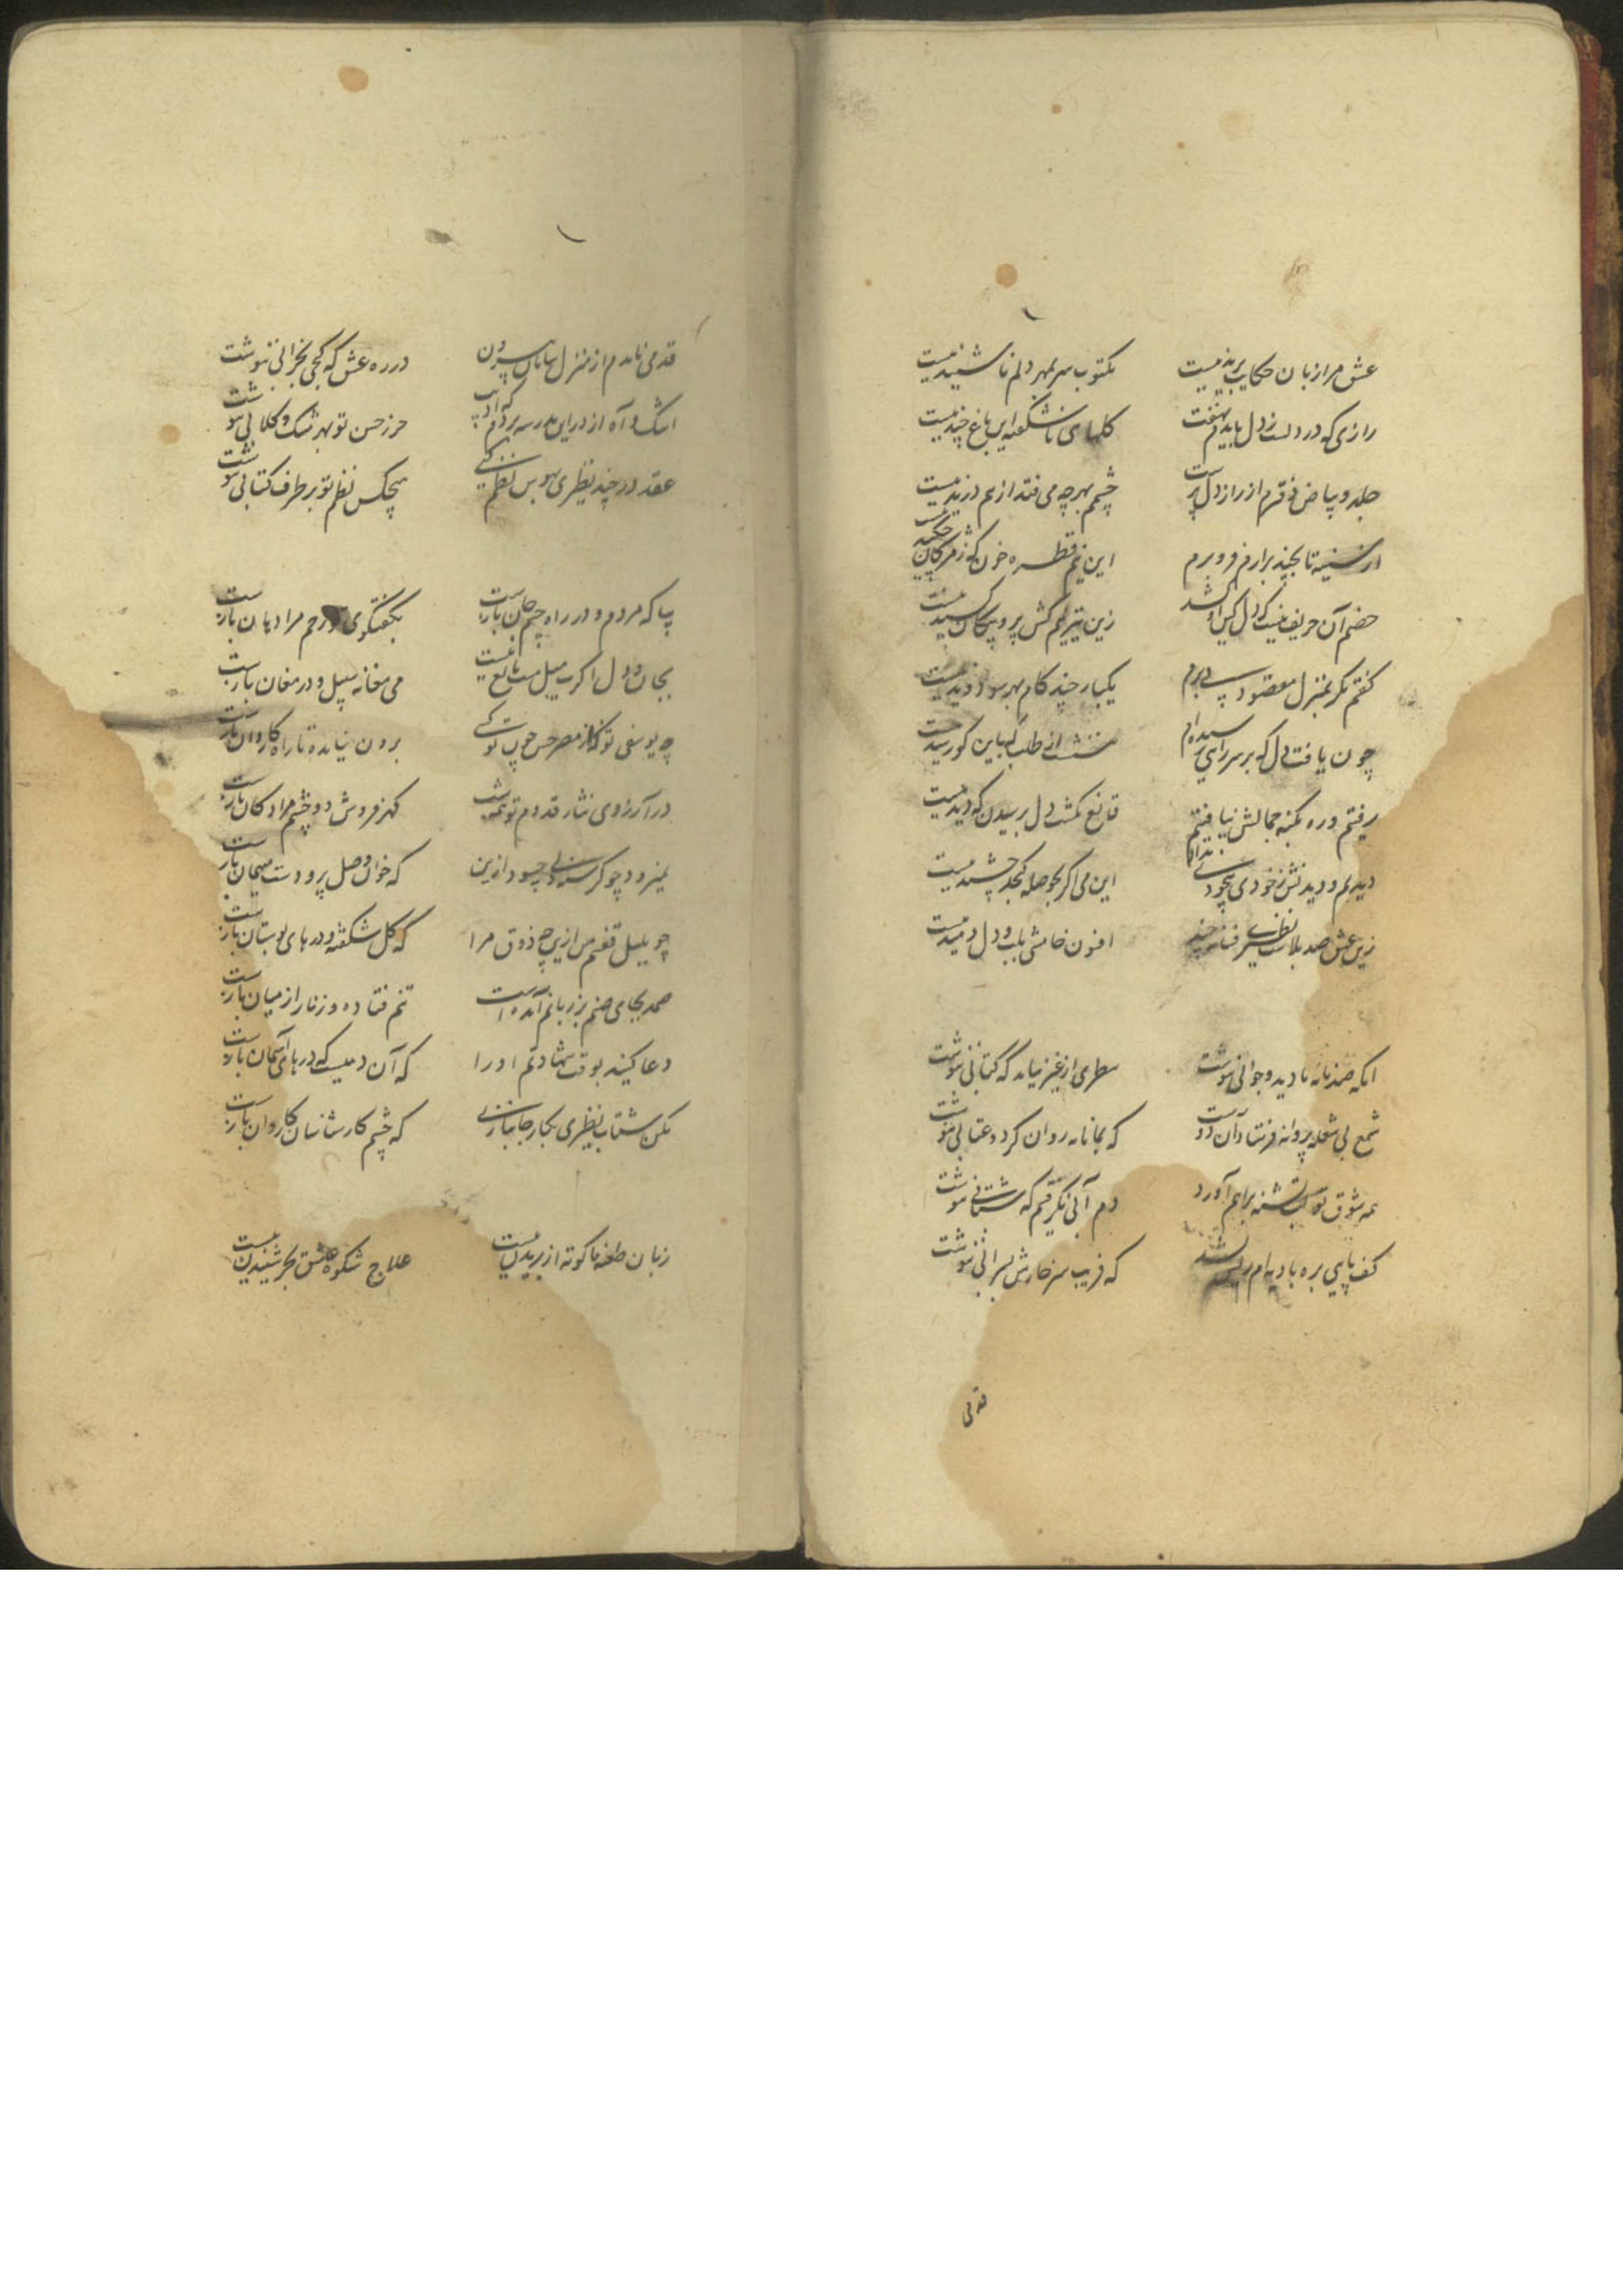 عشق مرا زبان حکایت بریدنیست
مکتوب سر بمهر دلم ناشنیدنیست
رازی که در دلست ز دل باید نهفت
گلهای ناشگفته این باغ چیدنیست
جلد و بیاض دفترم از راز دل پرست
چشم بهر چه می فتد از هم دریدنیست
از سینه تا بچند برارم فرو برم
این نیم قطره خون که ز مژگان چکیدنیست
خصم آن حریف نیست که دل کس ازو کشد
زین تیر نیم کش پر و پیکان کشیدنیست
گفتم مگر بمنزل مقصود پی برم
یکبار چند گام بهر سو دویدنیست
چون یافت دل که بر سر راهی رسیده ام
ننشست از طلب که باین کو رسیدنیست
رفتم و ره بکنه جمالش نیافتم
قانع نگشت دل برسیدن که دیدنیست
دیدیم و دیدنش ز خودی بیخودی نداد
این می اگر بحوصله گنجد چشیدنیست
زین عشق صد بلاست نظیری فسانه چند
افسون خامشی بلب و دل دمیدنیست
آنکه صد نامه ما دید و جوابی ننوشت
سطری از غیر نیامد که کتابی ننوشت
شمع بی شعله پروانه فرستاد آن دوست
که بما نامه روان کرد و عتابی ننوشت
همه شوق تو لب تشنه براهم آورد
دم آبی نگرفتم که شتابی ننوشت
کف پایی بره بادیه ام ریش نشد
که فریب سر خارش بسرابی ننوشت
قدمی
قدمی ماندم از منزل بیرون
در ره عشق که کجی بخرابی ننوشت
اشک و آه از در این مدرسه بردم که ادیب
حرز حسن تو بهر مشک و گلابی ننوشت
عقد در چند نظیری بهوس نظم کنی
هیچکس نظم تو بر طرف کتابی ننوشت
بیا که مردم و در راه چشم جان بازست
بگفتگوی تو زخم مرا دهان بازست
بجان و دل اگرت میل هست مانع نیست
می مغانه سبیل و در مغان بازست
چه یوسفی تو که از مصر حسن چون تو کسی
برون نیامده تا راه کاروان بازست
در آرزوی نثار قدوم تو همه شب
گهر فروش دو چشم مرا دکان بازست
که خوان وصل پر و دست میهمان بازست
چو بلبل قفسم من ازین چه ذوق مرا
که گل شگفته و درهای بوستان بازست
صمد بجای صنم بر زبانم آمده است
تنم فتاده و زنار از میان بازست
دعا کنید بوقت شهادتم او را
که آن دمیست که درهای آسمان بازست
مکن شتاب نظیری بکار جانبازی
که چشم کارشناسان کاروان بازست
زبان طعنه ما کوته از بریدن نیست
علاج شکوه عشق بجز شنیدن نیست